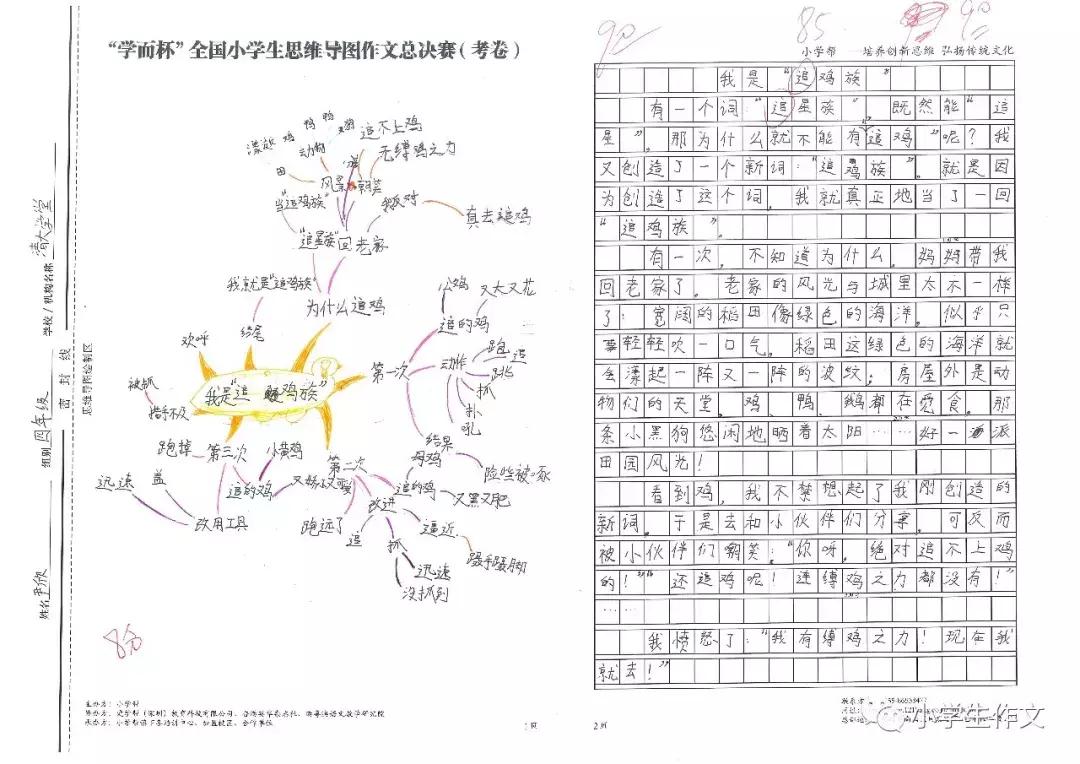 “学而杯”全国小学生思维导图作文总决赛(考卷)
学校/机构名称 清大学堂
组别 四年级
密 封 线
思维导图绘制区
漂放 鸡 鸭 鹅
动物
田
风景
追不上鸡
无缚鸡之力
嘲笑
当“追鸡族”
我反对
真去追鸡
“追星族”
回老家
我就是“追鸡族”
为什么追鸡
结尾
欢呼
我是“追鸡族”
公鸡
又大又花
追的鸡
第一次
动作
跑
追
跳
抓
扑
吼
结果
险些被啄
第二次
母鸡
追的鸡
又黑又肥
改进
逼近
蹑手蹑脚
追
抓
迅速
没抓到
跑远了
第三次
小黄鸡
追的鸡
跑掉
改用工具
盖
迅速
被抓
措手不及
85
主办方：小学帮
1页
90
85
90
小学帮 培养创新思维 弘扬传统文化
我是“追鸡族”
有一个词：“追星族”，既然能“追
星”，那为什么就不能有“追鸡”呢？我
又创造了一个新词：“追鸡族”。就是因
为创造了这个词，我就真正地当了一回
“追鸡族”。
有一次，不知道为什么，妈妈带我
回老家了。老家的风光与城里太不一样
了：宽阔的稻田像绿色的海洋。似乎只
要轻轻吹一口气，稻田这绿色的海洋就
会漾起一阵又一阵的波纹；房屋外是动
物们的天堂。鸡、鸭、鹅都在觅食。那
条小黑狗悠闲地晒着太阳……好一派
田园风光！
看到鸡，我不禁想起了我刚创造的
新词，于是去和小伙伴们分享，可反而
被小伙伴们嘲笑：“你呀，绝对追不上鸡
的！”“还追鸡呢！连缚鸡之力都没有！”
……
我愤怒了：“我有缚鸡之力！现在我
就去！”
2页
小学生作文